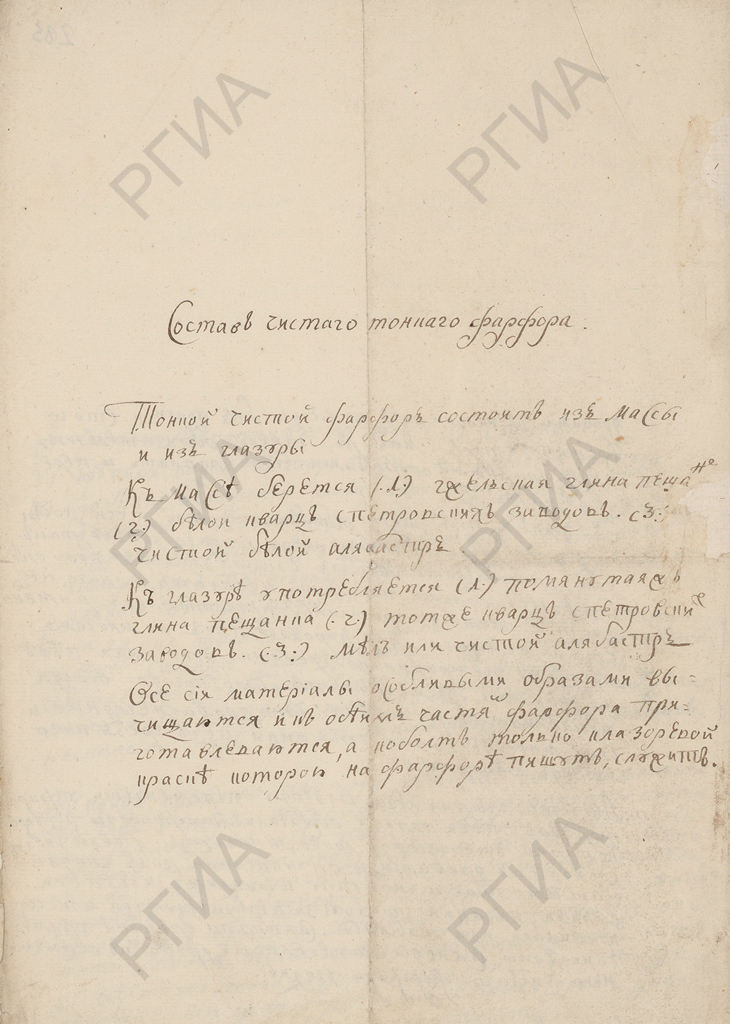 Составъ чистаго тоннаго фарфора.
Тонной чистой фарфоръ состоитъ изъ массы
и изъ глазуры
Къ массѣ берется (.1.) гжельская глина пеща
(2.) бѣлой кварцъ спетровскихъ заводовъ. (3.)
чистой бѣлой алябастръ.
Къ глазурѣ употребляется (1.) помянутаяжъ
глина пещанка (.2.) тотже кварцъ спетровски
заводовъ. (.3.) мѣлъ или чистой алябастръ
Все сіи матеріалы особливыми образами вы=
чищаются и къ обѣимъ частямъ фарфора при=
готавлеваются, а коболтъ только клазоревой
краскѣ которою на фарфорѣ пишутъ, служитъ.
РГИА
РГИА
РГИА
РГИА
РГИА
РГИА